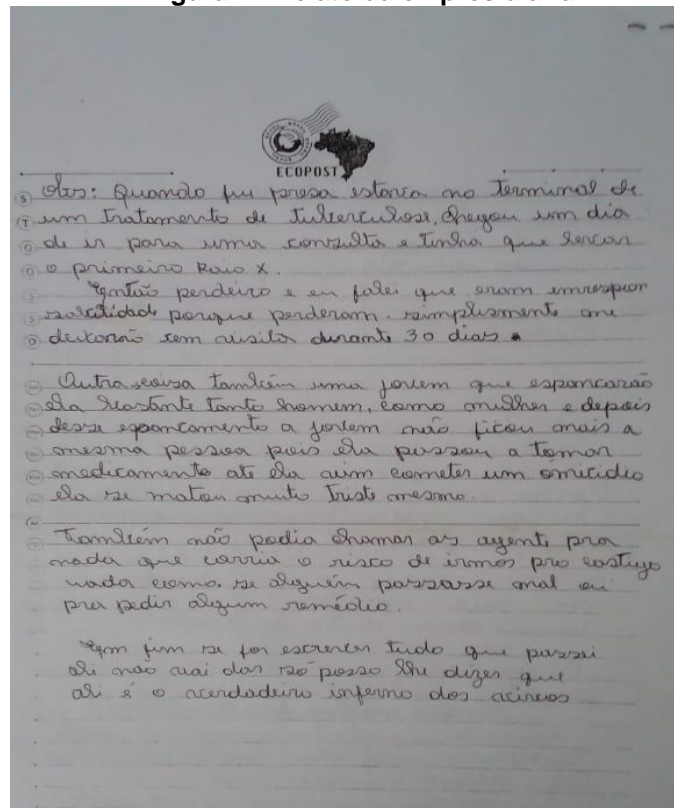 ECOPOST
Obs: Quando fui presa estava no terminal de
um tratamento de tuberculose, chegou um dia
de ir para uma consulta e tinha que levar
o primeiro Raio X.
Então perdeiro e eu falei que eram enrespon
sabilidade porque perderam. simplismente me
deixarão sem visita durante 30 dias.
Outra coisa também uma jovem que espancarão
ela bastante tanto homem, como mulher e depois
desse espancamento a jovem não ficou mais a
mesma pessoa pois ela passou a tomar
medicamento ate ela vim cometer um omicidio
ela se matou muito triste mesmo.
Também não podia chamar as agente pra
nada que corria o risco de irmos pro castigo
nada como, se alguém passasse mal ou
pra pedir algum remédio.
Em fim se for escrever tudo que passei
ali não vai dar só posso lhe dizer que
ali é o verdadeiro inferno dos vivos